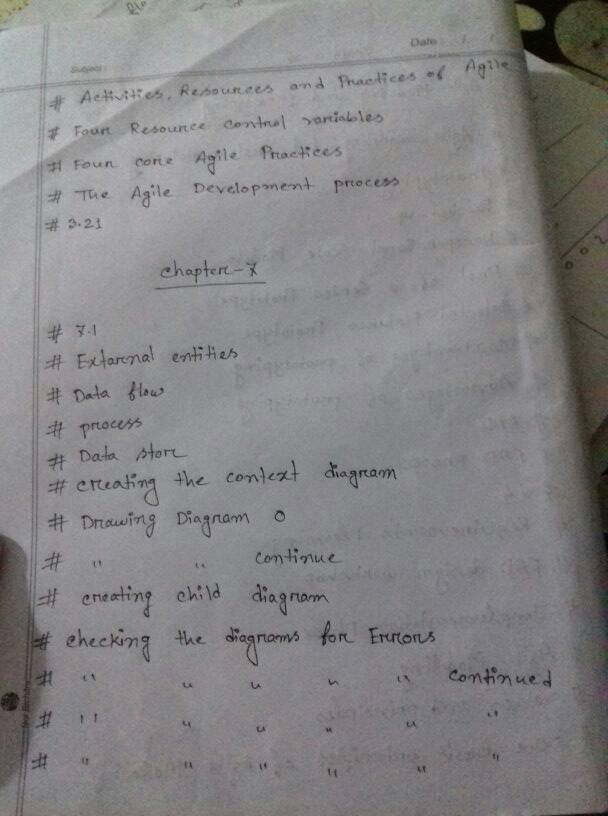 Subject:
Date / /
# Activities, Resources and Practices of Agile
# Four Resource control variables
# Four core Agile Practices
# The Agile Development process
# 3.21
chapter-7
# 7.1
# Extarnal entities
# Data flow
# process
# Data store
# creating the context diagram
# Drawing Diagram 0
# " " continue
# creating child diagram
# checking the diagrams for Errors
# " " " " " continued
# " " " " " "
# " " " " " "